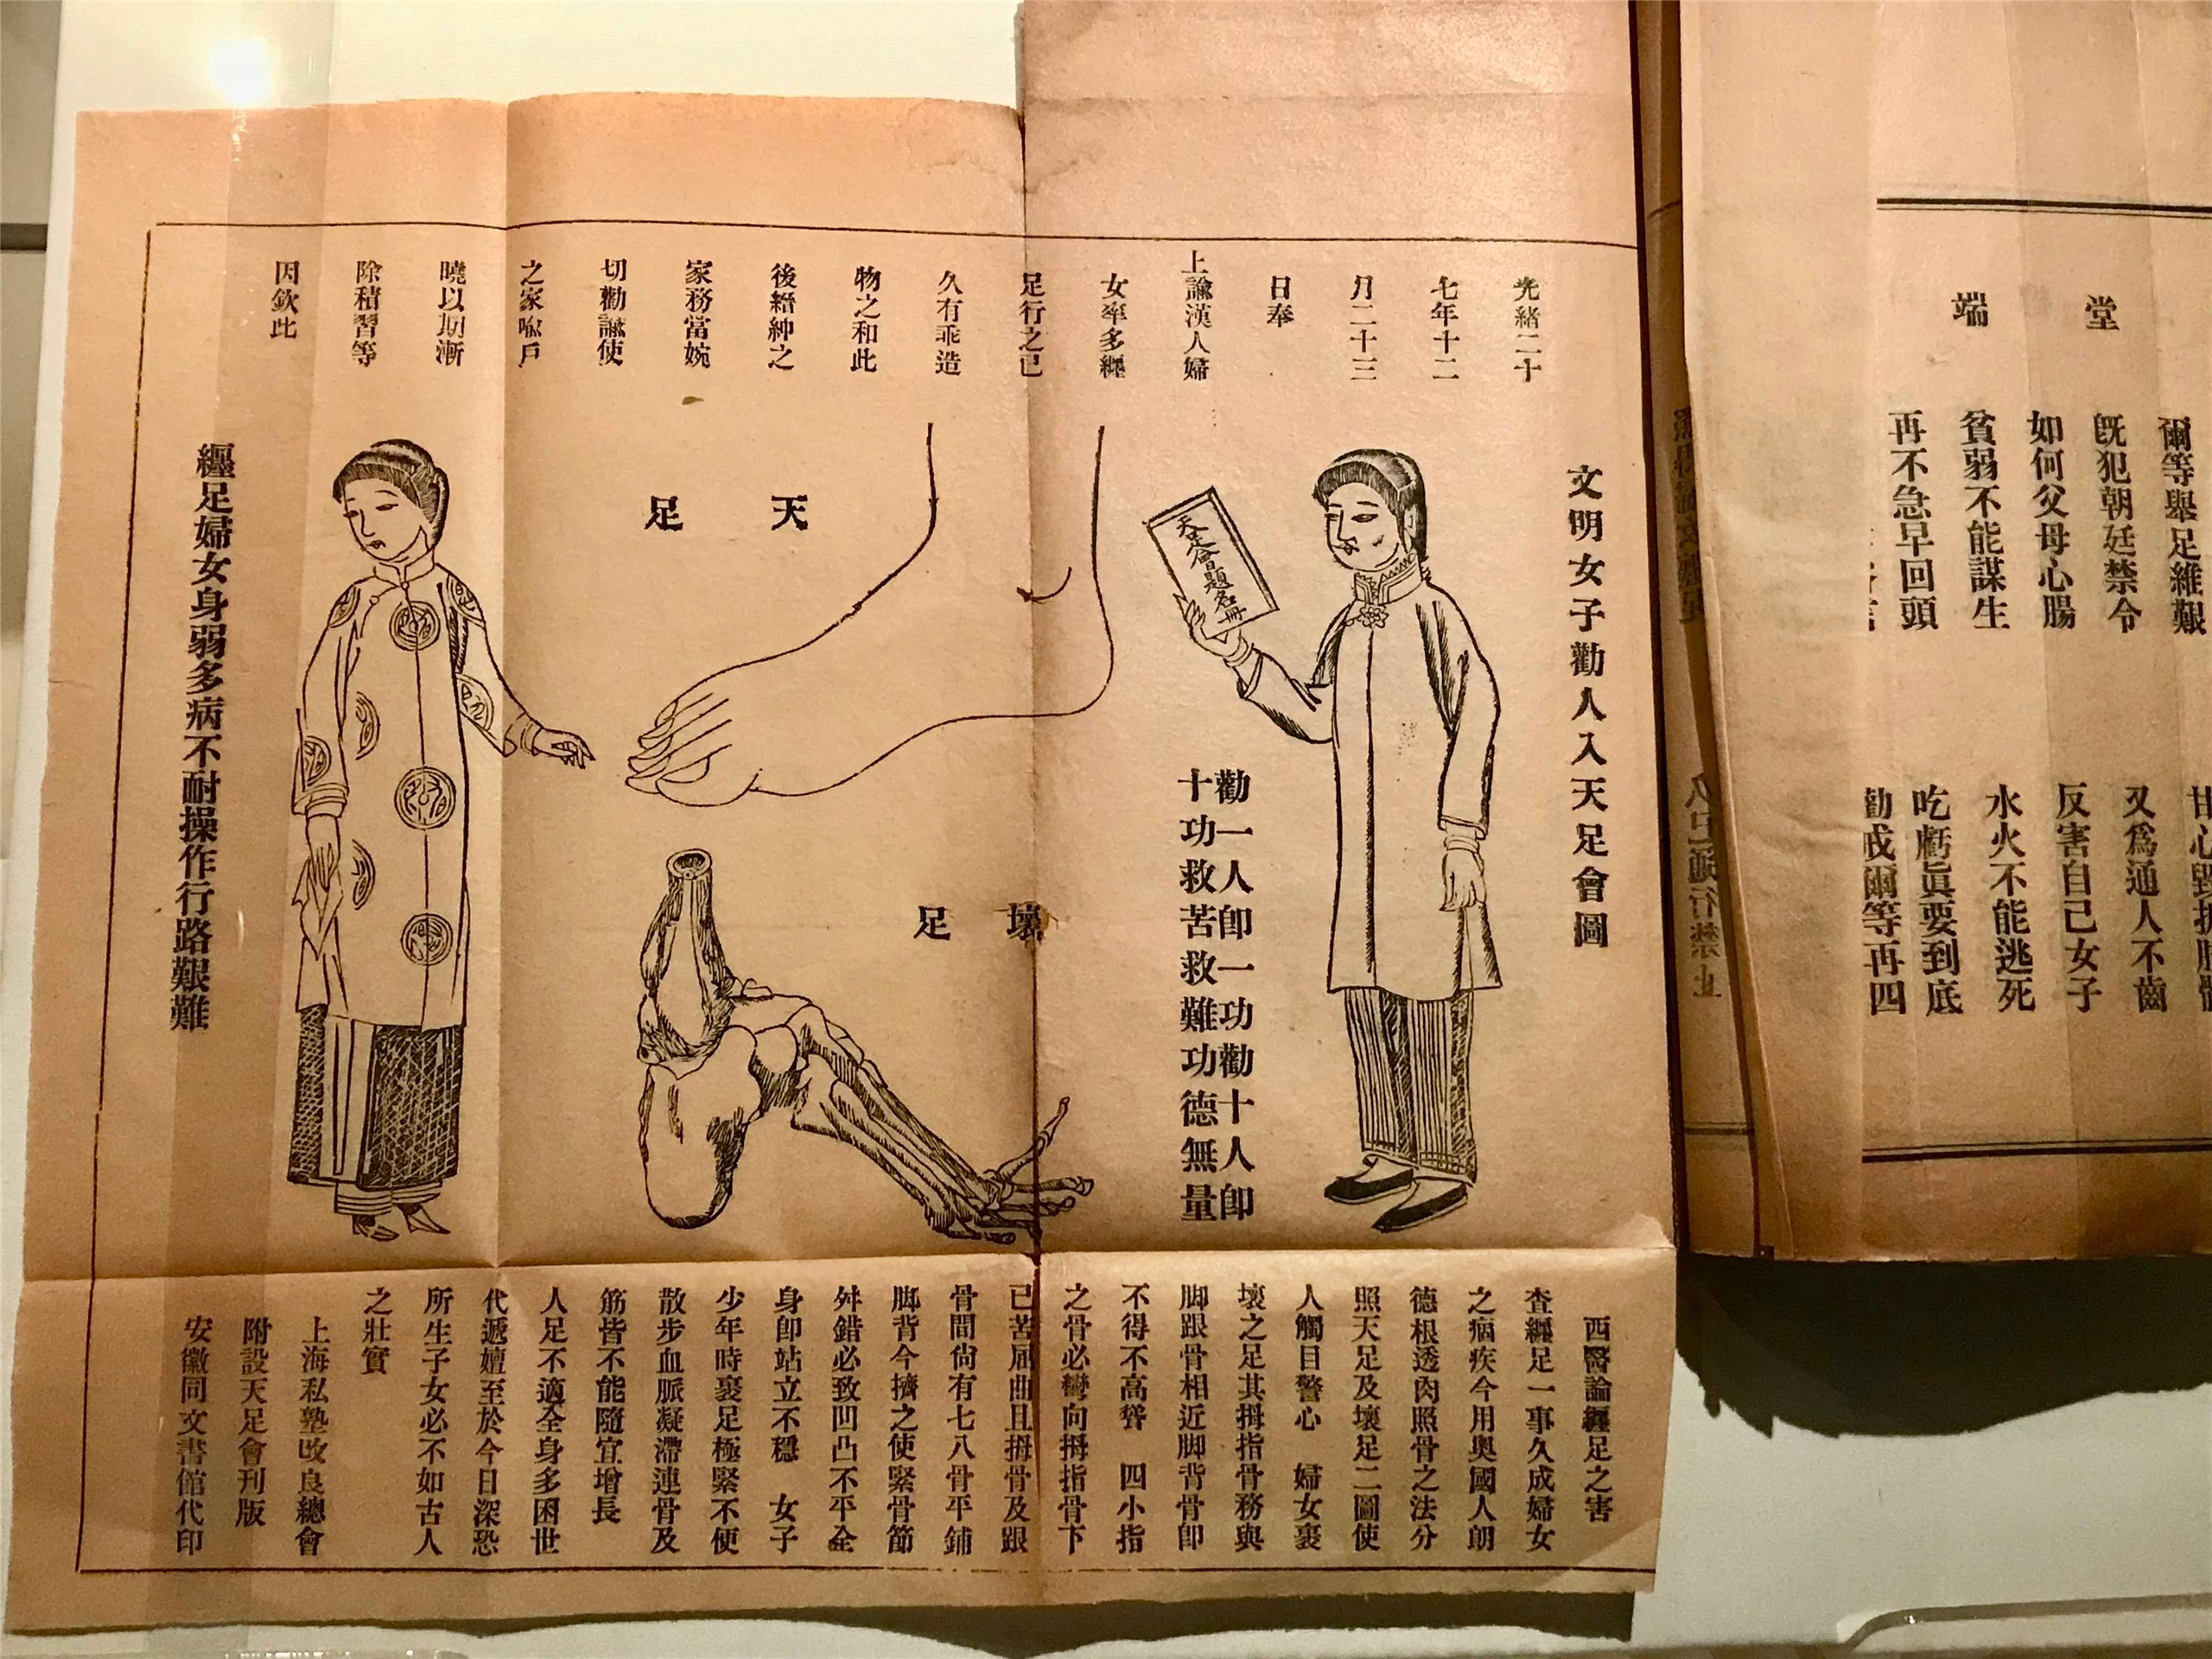 堂
端
爾等舉足維艱
既犯朝廷禁令
如何父母心腸
貧弱不能謀生
再不急早回頭
又爲通人不齒
反害自己女子
水火不能逃死
吃虧眞要到底
勸戒爾等再四
光緒二十
七年十二
月二十三
日奉
上諭漢人婦
女率多纏
足行之已
久有乖造
物之和此
後縉紳之
家務當婉
切勸諭使
之家喩戶
曉以期漸
除積習等
因欽此
文明女子勸人入天足會圖
天足會題名冊
勸一人卽一功勸十人卽
十功救苦救難功德無量
天足
壞足
纏足婦女身弱多病不耐操作行路艱難
西醫論纏足之害
查纏足一事久成婦女
之病疾今用奧國人朗
德根透肉照骨之法分
照天足及壞足二圖使
人觸目警心　婦女裹
壞之足其拇指骨務與
脚跟骨相近脚背骨卽
不得不高聳　四小指
之骨必彎向拇指骨下
已苦屈曲且拇骨及跟
骨間尙有七八骨平鋪
脚背今擠之使緊骨節
舛錯必致凹凸不平全
身卽站立不穩　女子
少年時裹足極緊不便
散步血脈凝滯連骨及
筋皆不能隨宜增長
人足不適全身多困世
代遞嬗至於今日深恐
所生子女必不如古人
之壯實
上海私塾改良總會
附設天足會刊版
安徽同文書館代印